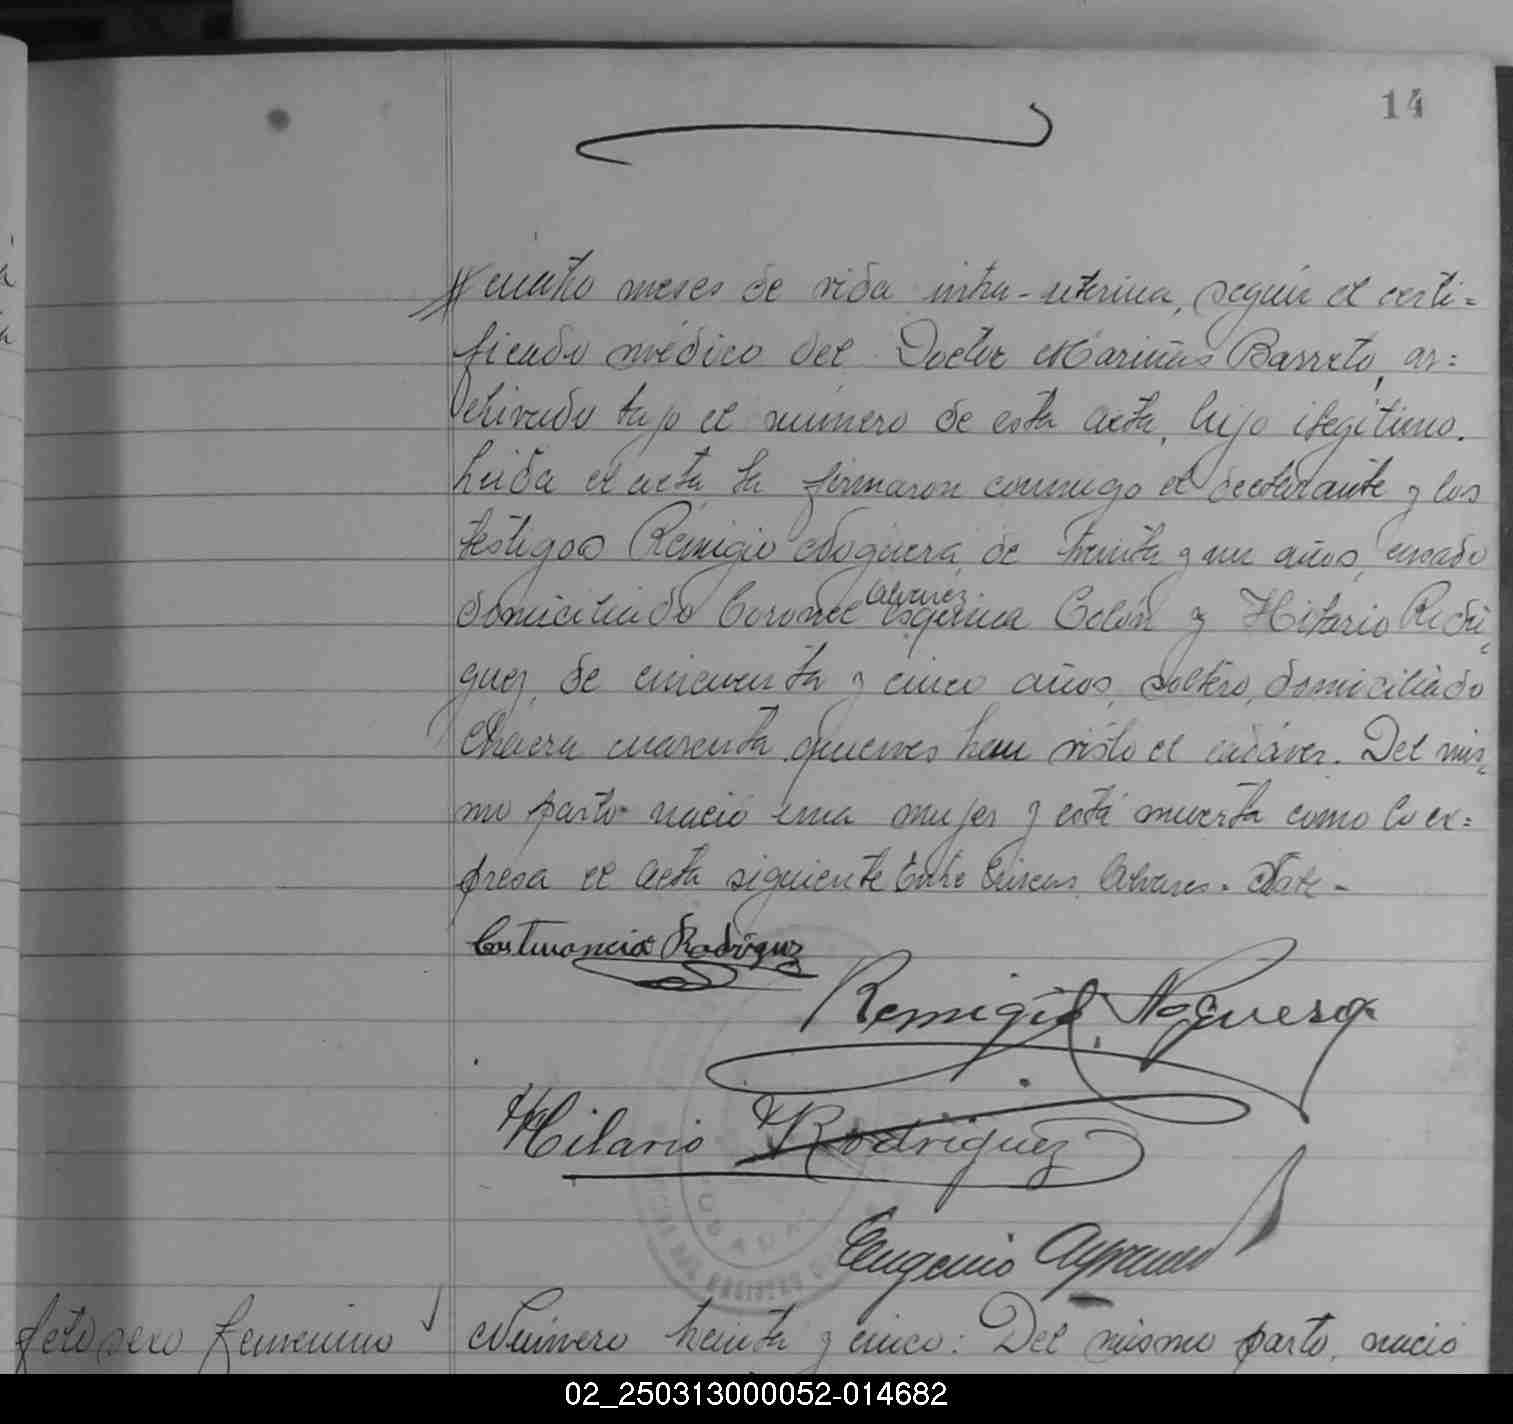 14
cuatro meses de vida intra-uterina, según el certi=
ficado médico del Doctor Mariños Barreto, ar=
chivado bajo el número de esta acta, hijo ilegítimo.
Leida el acta la firmaron conmigo el declarante y los
testigos Remigio Noguera, de treinta y un años, casado
Alvarez
domiciliado Coronel esquina Colón y Hilario Rodrí=
guez, de cincuenta y cinco años, soltero, domiciliado
Chacra cuarenta quienes han visto el cadáver. Del mis=
mo parto nació una mujer y está muerta como lo ex=
presa el acta siguiente Entre lineas Alvares. Vale -
Rodriguez
Remigio Noguera
Hilario Rodriguez
Eugenio
feto sexo femenino
Número treinta y cinco: Del mismo parto, nació
02_250313000052-014682